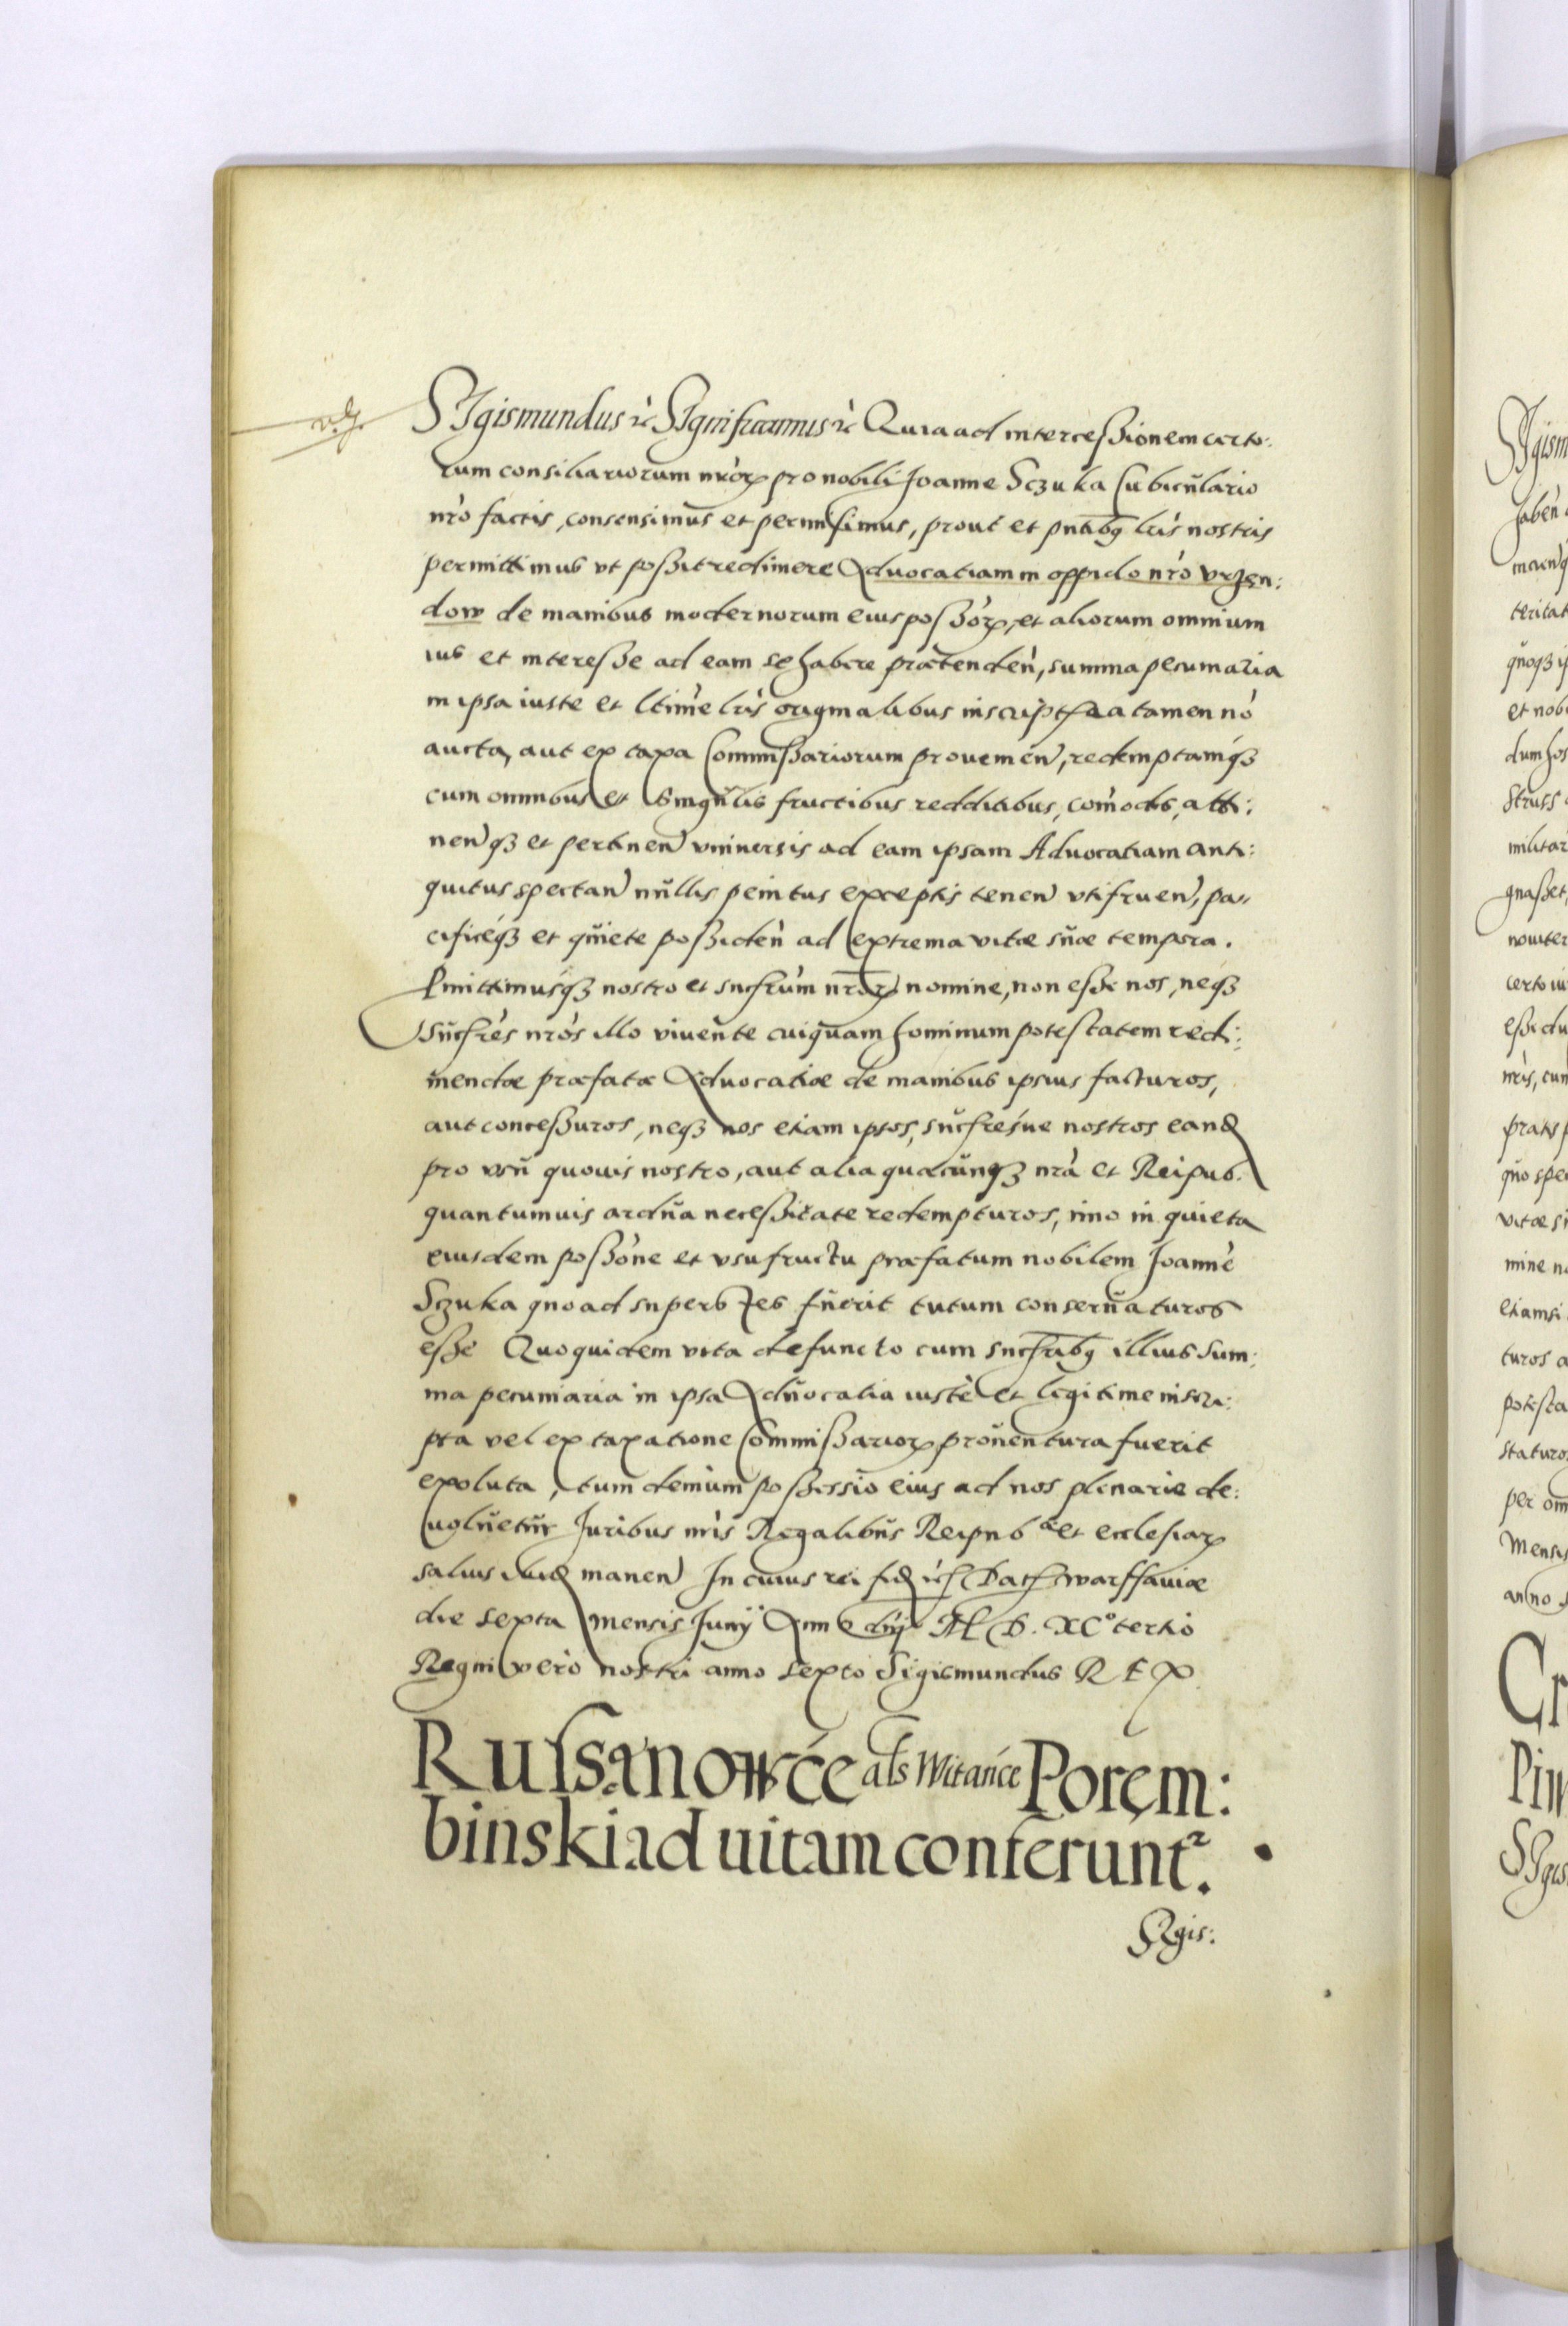 SIgismundus &c̀ SIgnificamus &c̀ Quia ad intercessionem certo:
rum consiliariorum nròꝝ pro nobili Joanne Sczuka Cubicŭlario
nrò factis, consensimŭs et permisimus, prout et pn̄tibꝫ lrìs nostris
permittimus vt possit redimere Aduocatiam in oppido nrò vrzen:
dow de manibus modernorum eius possòrꝝ, et aliorum omnium
ius et interesse ad eam se habere prætendeǹ, summa pecuniaria
in ipsa iuste et ltimè lrìs originalibus inscripta a tamen nò
aucta, aut ex taxa Commissariorum prouenieǹ, redemptamqꝫ
cum omnibus et singŭlis fructibus redditibus, comòdis, atti:
neǹqꝫ et pertineǹ vniuersis ad eam ipsam Aduocatiam anti:
quitus spectaǹ nŭllis penitus exceptis teneǹ vtifrueǹ, pa:
cificéqꝫ et qŭiete possideǹ ad extrema vitæ sŭæ tempora.
Pmittimusqꝫ nostro et sucsrùm nr̄oꝝ nomine, non esse nos, neqꝫ
sŭcsrès nròs illo viuente cuiqŭam hominum potestatem redi:
mendæ præfatæ Aduocatiæ de manibus ipsius facturos,
aut concessuros, neqꝫ nos etiam ipsos, sŭcsresùe nostros eandꝫ
pro vsŭ quouis nostro, aut alia quacŭnqꝫ nrà et Reipub.
quantumuis ardŭa necessitate redempturos, imo in quieta
eiusdem possòne et vsufructu præfatum nobilem Joannè
Sczuka quoad superstes fŭerit tutum conserŭaturos
esse Quoquidem vita defuncto cum sucsr̄ibꝫ illius sum:
ma pecuniaria in ipsa Adŭocatia iustè et legitime inscri:
pta vel ex taxatione Commissarioꝝ proŭentura fuerit
exoluta, tum demùm possessio eius ad nos plenarie de:
uolŭetŭr Juribus nrìs Regalibŭs Reipub.ᵃᵉ et ecclesiaꝝ
saluis maneǹ In cuius rei fidꝫ Dat Warssauiæ
die sexta mensis Junij Anno dnj M. D. XC° tertio
Regni vero nostri anno sexto Sigismundus REX
Russanowće als Witańce Poręm:
binski ad uitam conferunt².
SIgis: